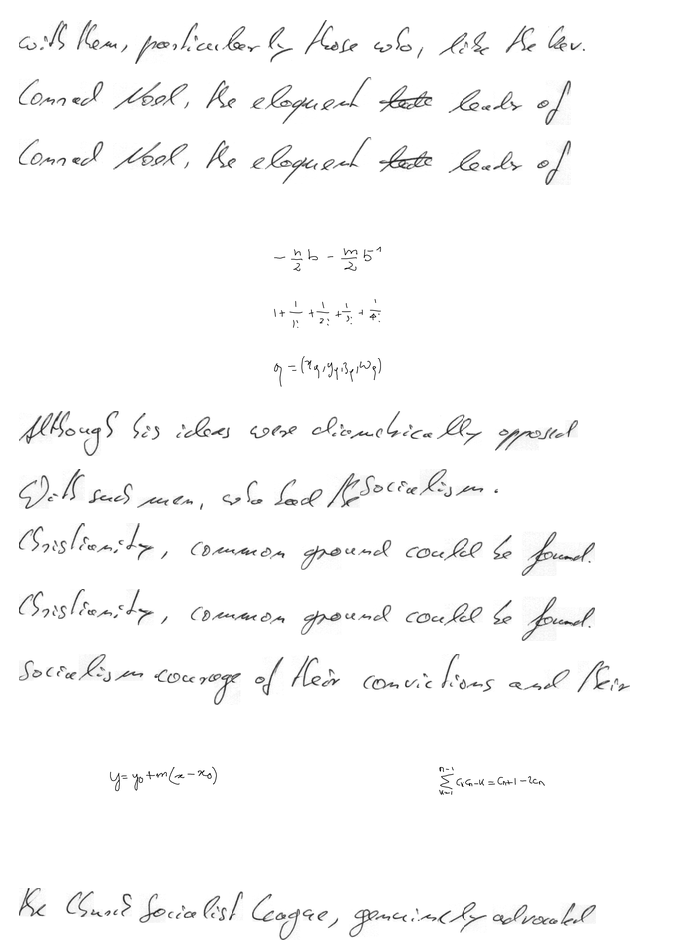 with them, particularly those who, like the Rev.
Conrad Noel, the eloquent leader of
Conrad Noel, the eloquent leader of
- \frac{n}{2} b - \frac{m}{2} b^1
1 + \frac{1}{1!} + \frac{1}{2!} + \frac{1}{3!} + \frac{1}{4!}
q = (x_q, y_q, z_q, w_q)
Although his ideas were diametrically opposed
With such men, who had the Socialism.
Christianity, common ground could be found.
Christianity, common ground could be found.
Socialism courage of their convictions and their
y = y_0 + m(x - x_0)
\sum_{k=1}^{n-1} C_k C_{n-k} = C_{n+1} - 2C_n
the Church Socialist League, genuinely advocated